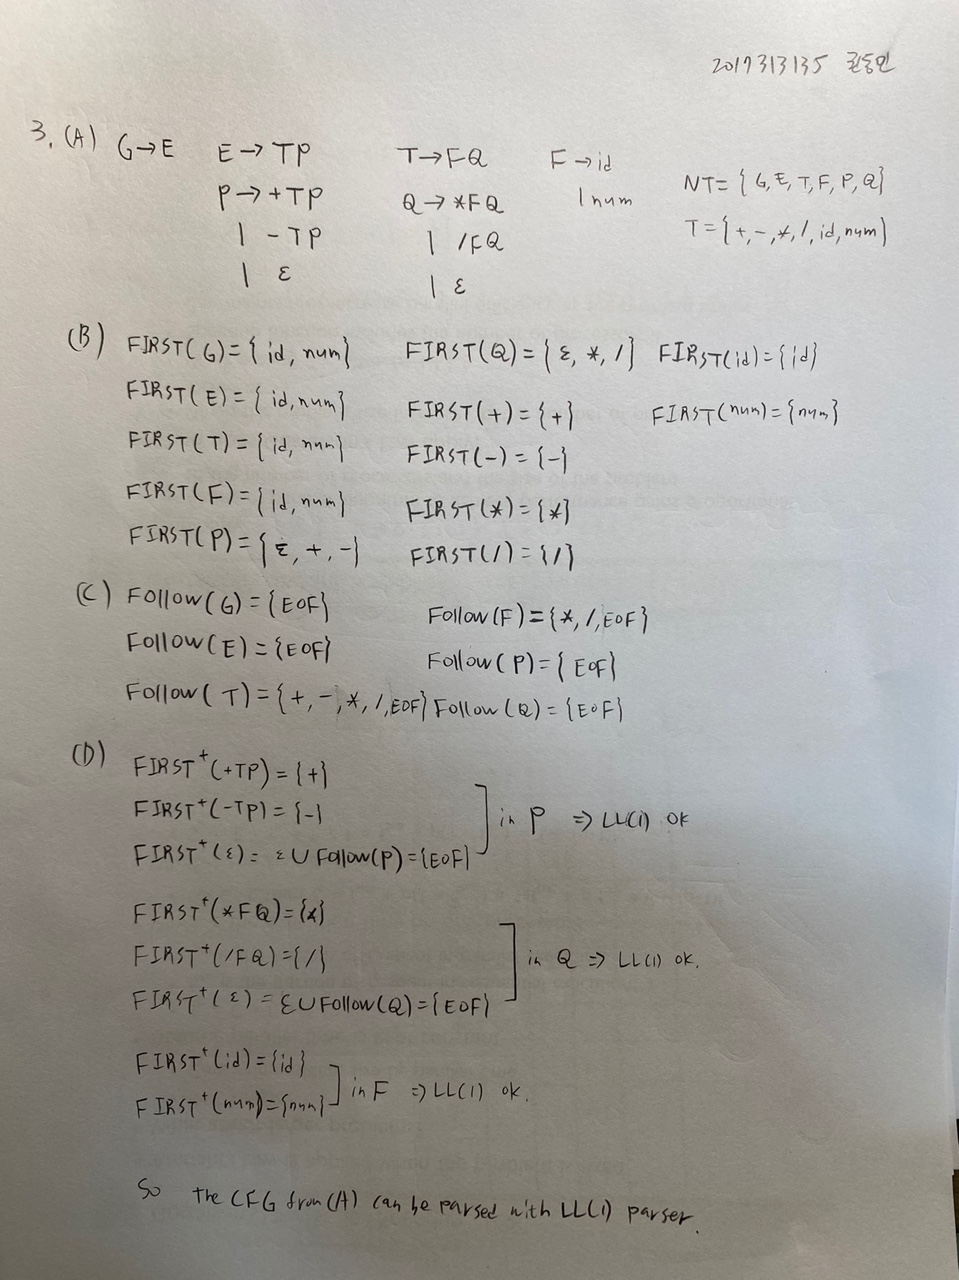 2017313135 권동민
3. (A) G→E E→TP T→FQ F→id
P→+TP Q→*FQ | num NT={G,E,T,F,P,Q}
| -TP | /FQ T={+,-,*,/,id,num}
| ε | ε
(B) FIRST(G)={id, num} FIRST(Q)={ε, *, /} FIRST(id)={id}
FIRST(E)={id,num} FIRST(+)={+} FIRST(num)={num}
FIRST(T)={id, num} FIRST(-)={-}
FIRST(F)={id, num} FIRST(*)={*}
FIRST(P)={ε, +, -} FIRST(/)={/}
(C) Follow(G)={EOF} Follow(F)={*,/,EOF}
Follow(E)={EOF} Follow(P)={EOF}
Follow(T)={+,-,*,/,EOF} Follow(Q)={EOF}
(D) FIRST⁺(+TP)={+}
FIRST⁺(-TP)={-} in P ⇒ LL(1) OK
FIRST⁺(ε)= ε∪Follow(P)={EOF}
FIRST⁺(*FQ)={*}
FIRST⁺(/FQ)={/} in Q ⇒ LL(1) ok.
FIRST⁺(ε)=ε∪Follow(Q)={EOF}
FIRST⁺(id)={id} in F ⇒ LL(1) ok.
FIRST⁺(num)={num}
So the CFG from (A) can be parsed with LL(1) parser.